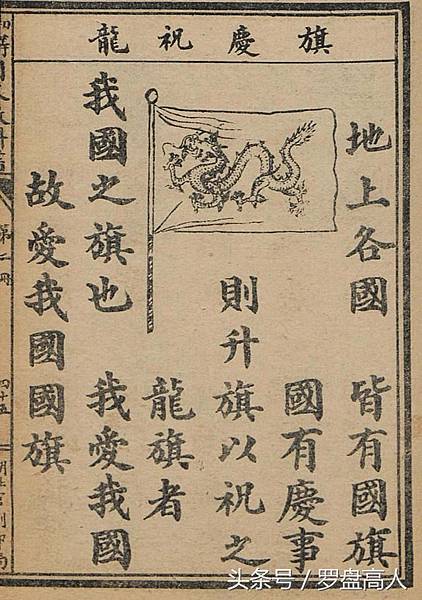 旗慶祝龍
地上各國 皆有國旗
國有慶事
則升旗以祝之
龍旗者
我國之旗也 我愛我國
故愛我國國旗
第二冊
四十五
头条号 / 罗盘高人